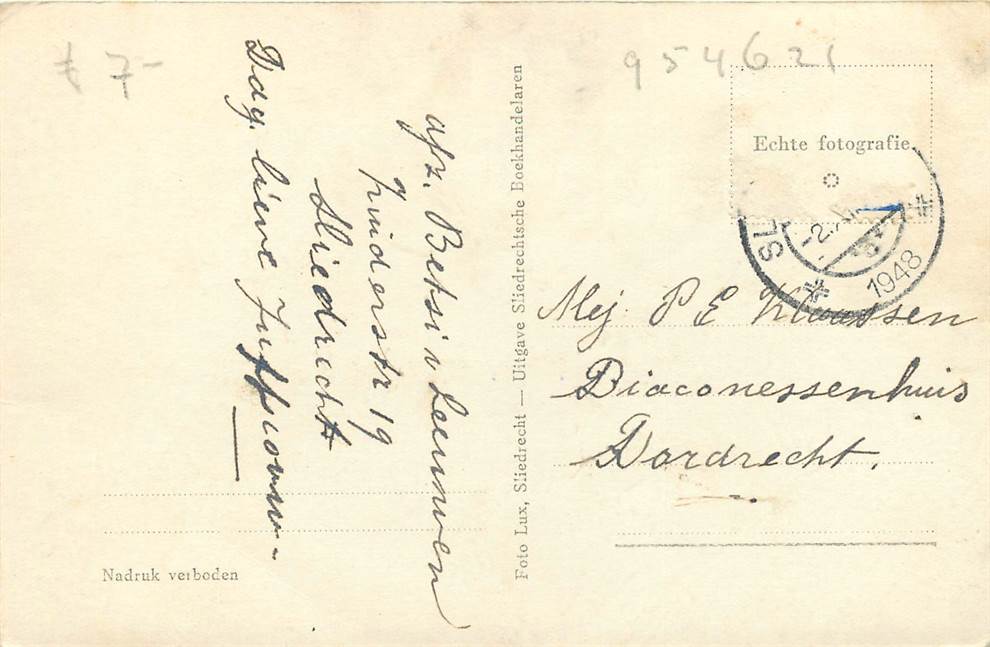 € 7-
954621
Echte fotografie
SL
-2.XI
1948
Mej P E Klaassen
Diaconessenhuis
Dordrecht.
Foto Lux, Sliedrecht — Uitgave Sliedrechtsche Boekhandelaren
afz. Betsi v Leeuwen
Sliedrecht
Dag. lieve Juffrouw-
Nadruk verboden